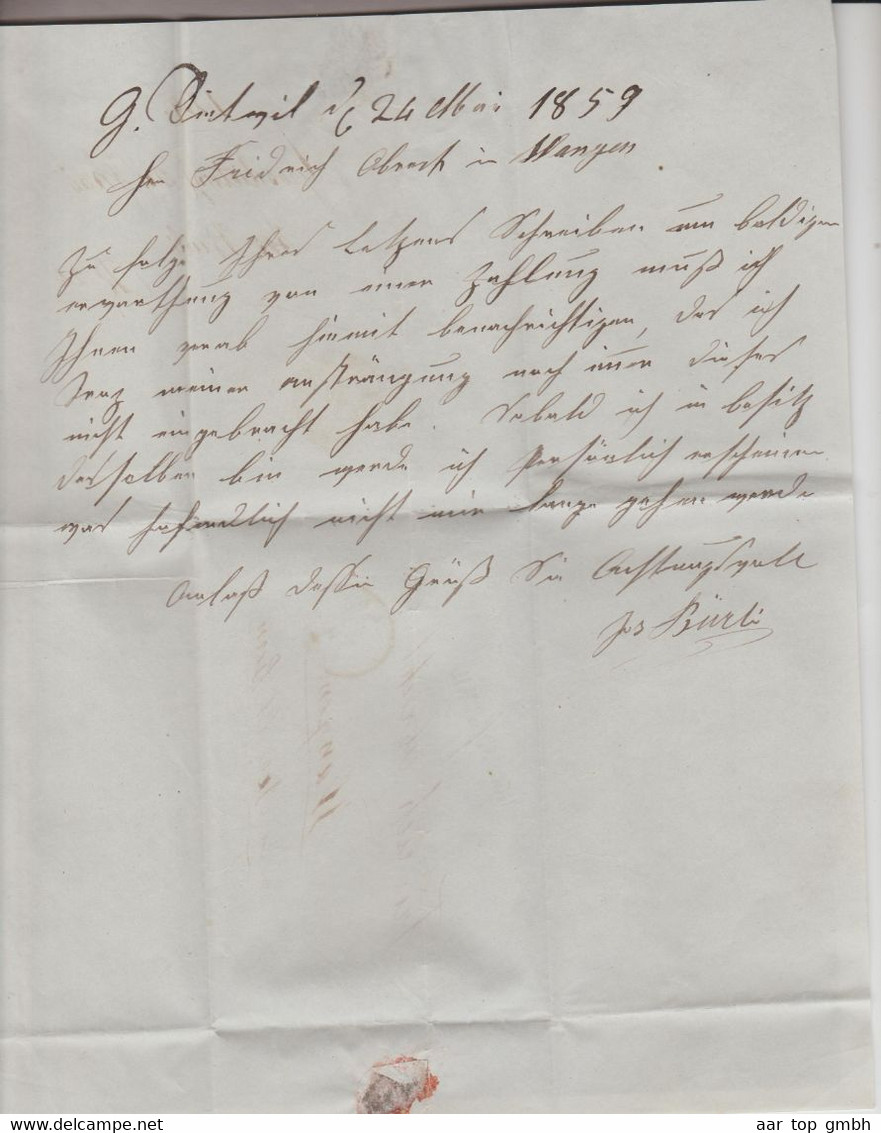 G. Dietwil d 24 Mai 1859
Hrn Fridrich Obrecht in Wangen
Zu folge Ihres Letzens Schreiben um baldigen
erwarthung von einer Zahlung muß ich
Ihnen vorab hiemit benachrichtigen, das ich
Troz meiner anstrángung noch immer dieses
nicht eingebracht habe. Sobald ich in besitz
desselben bin werde ich Persönlich erscheinen
was hofendlich nicht mir lange gehen werde
Anlaß dessen Grüß Sie Achtungsvoll
Jos Bürli
Delcampe.net
aar top gmbh